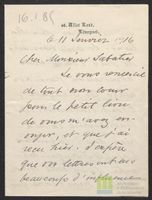 16.1.85
Liverpool.
le 11 Janvier 1916
Cher Monsieur Sabatier
Je vous remercie
de tout mon cœur
pour le petit livre
que vous m'avez en-
voyé, et que j'ai
reçu hier. J'espère
que vos lettres
beaucoup d'influence